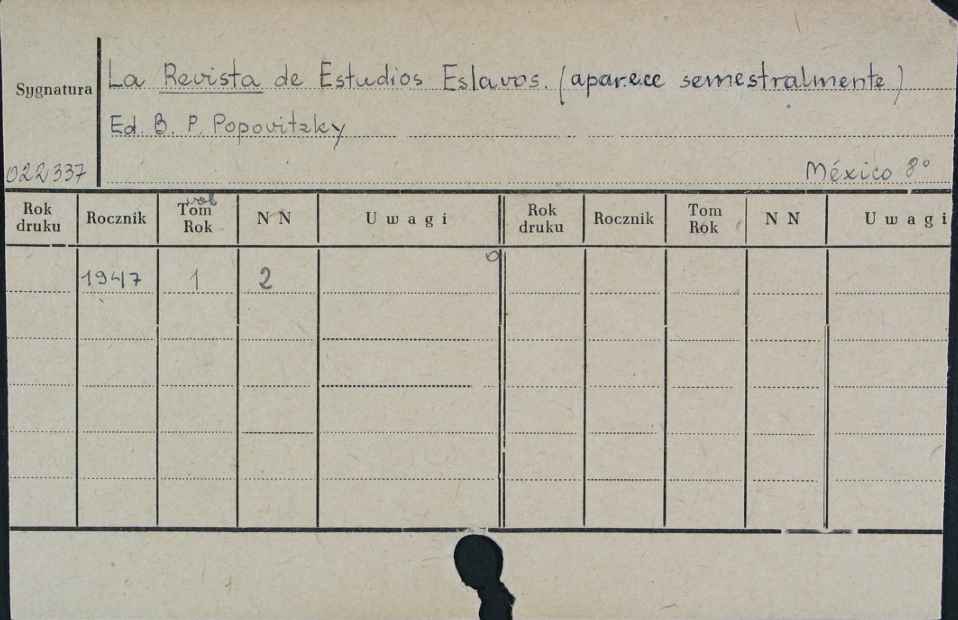 Sygnatura
La Revista de Estudios Eslavos. (aparece semestralmente)
Ed. B. P. Popovitzky
022337
México 8°
Rok druku Rocznik Tom vol Rok N N U w a g i Rok druku Rocznik Tom Rok N N U w a g i
1947 1 2